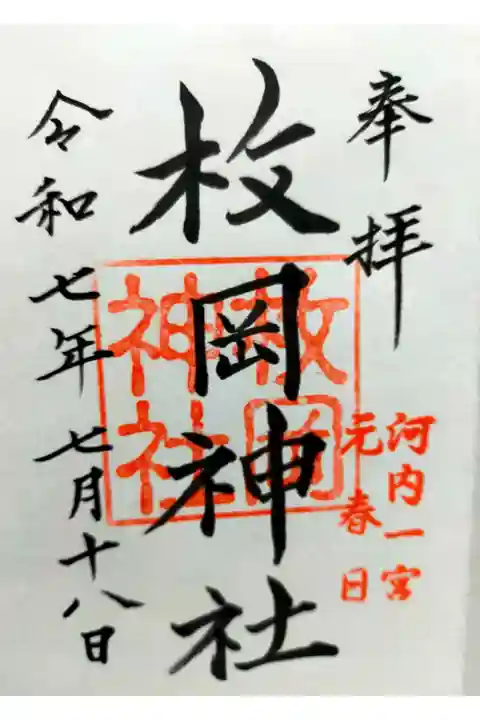 奉拝
河内一宮
元春日
枚岡神社
枚岡神社
令和七年七月十八日